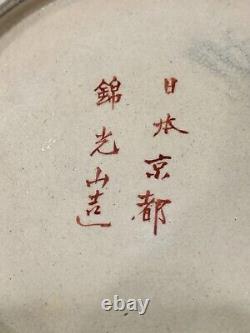 日本京都
錦光山造
© ebay